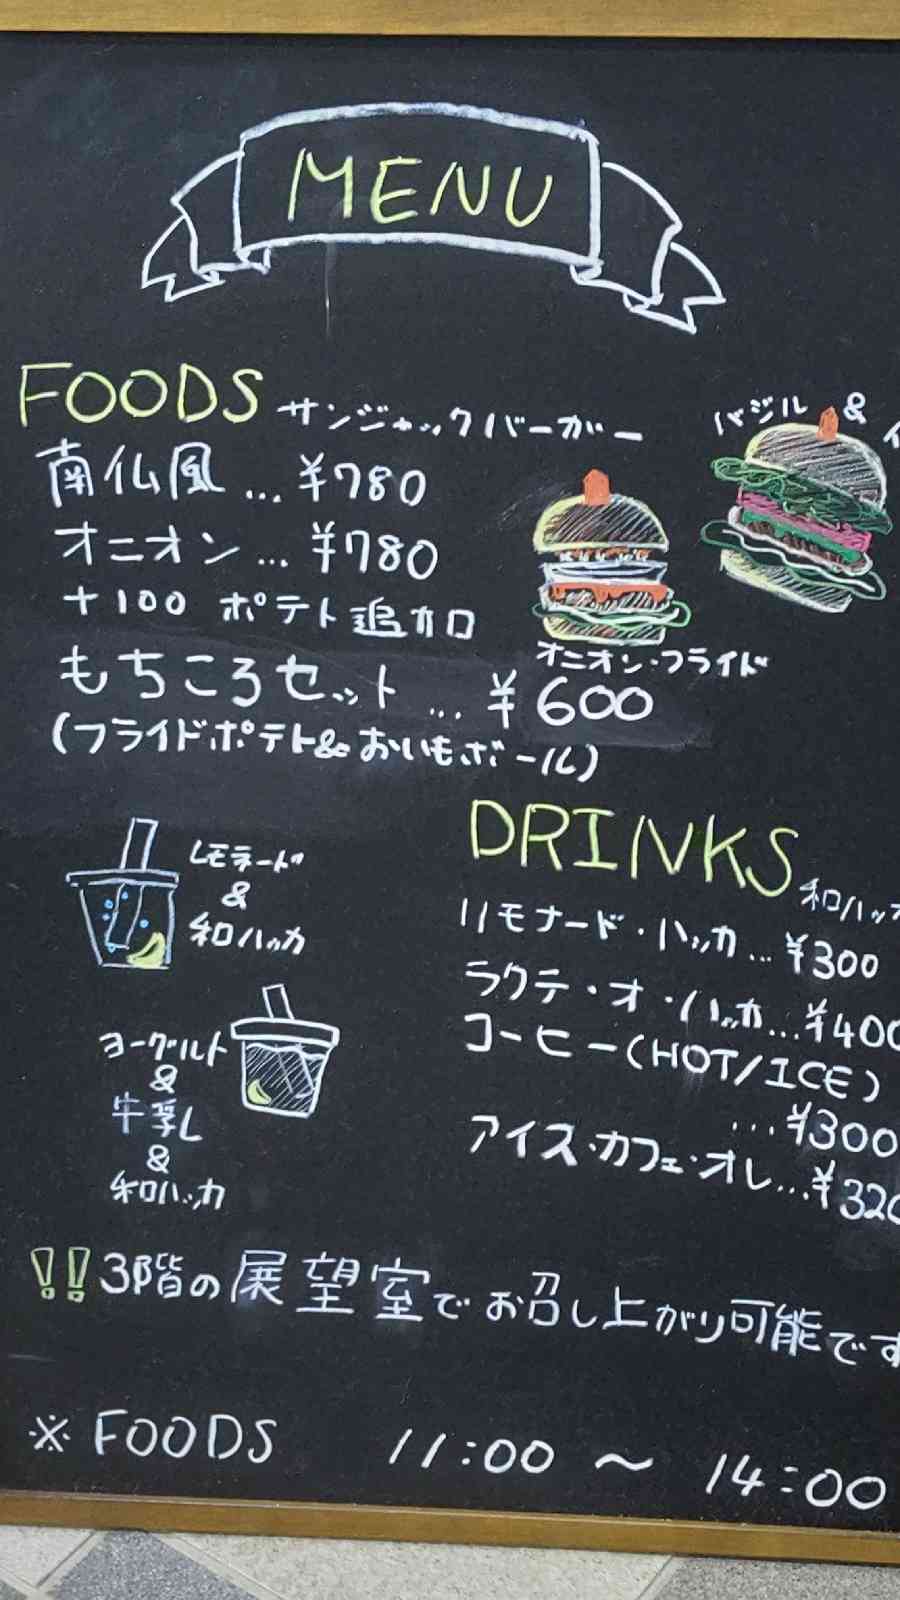 MENU
FOODS サンジャックバーガー
バジル &
南仏風 … ¥780
オニオン … ¥780
+100 ポテト追加
オニオン・フライド
もちころセット … ¥600
(フライドポテト&おいもボール)
DRINKS
レモネード
&
和ハッカ
和ハッカ
リモナード・ハッカ … ¥300
ラクテ・オ・ハッカ … ¥400
コーヒー(HOT/ICE)
… ¥300
アイス・カフェ・オレ … ¥320
ヨーグルト
&
牛乳
&
和ハッカ
!!3階の展望室でお召し上がり可能です
※ FOODS 11:00 ~ 14:00